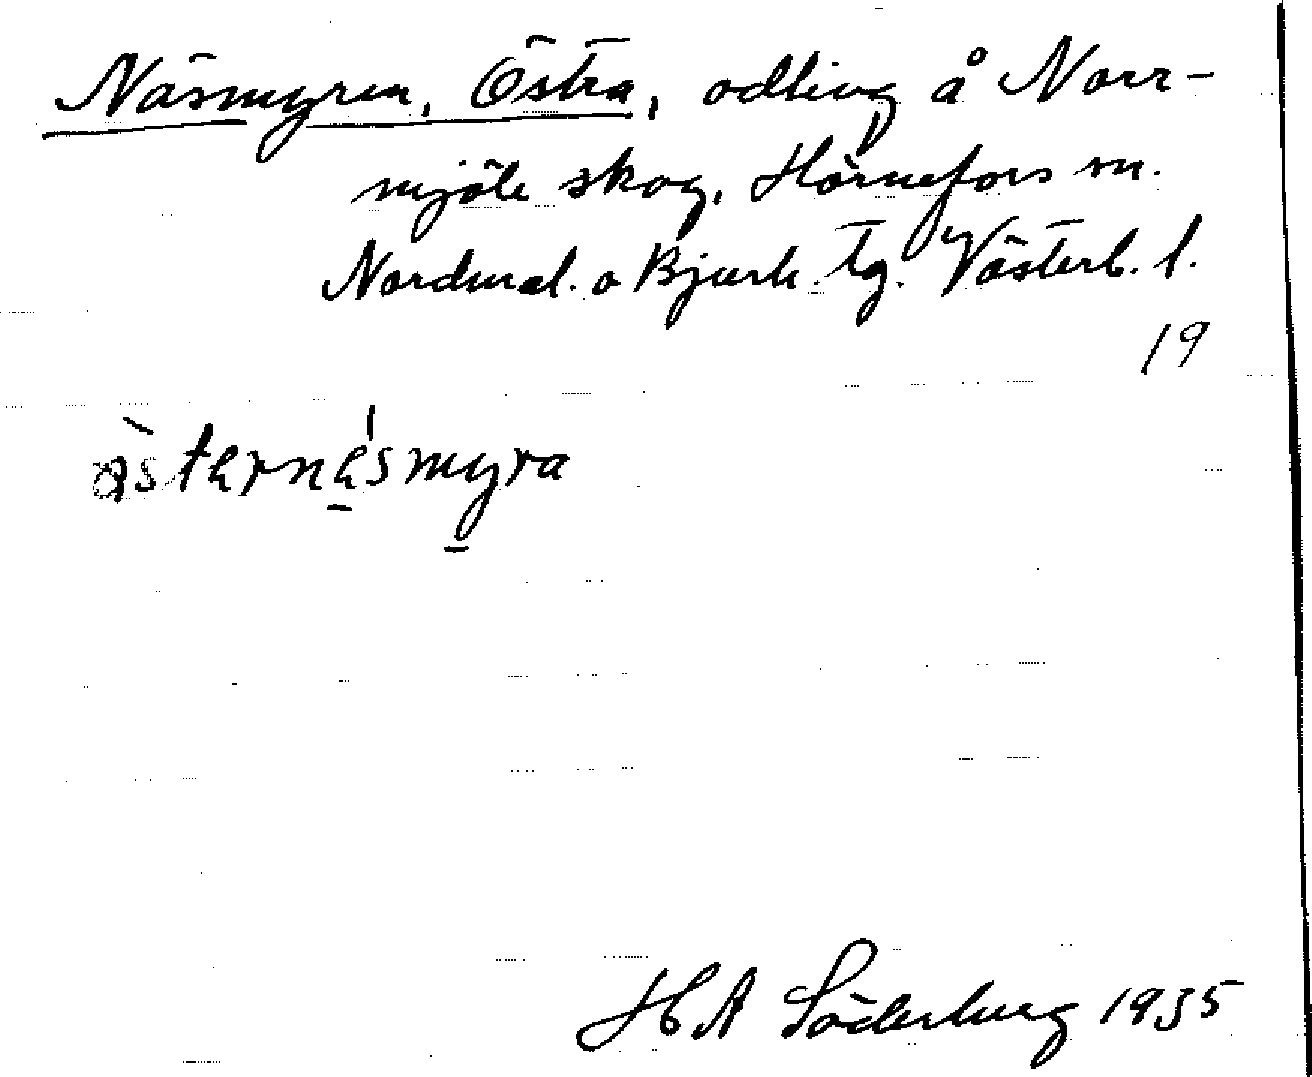 Näsmyren, Östra, odling å Norr-
mjöle skog, Hörnefors sn.
Nordmal. o Bjurh. tg. Västerb. l.
19
östernäsmyra
HA Söderberg 1935